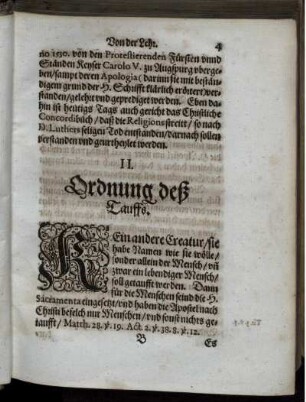 Von der Lehr. 4
no 1530. von den Protestierenden Fürsten vnnd
Ständen Keyser Carolo V. zu Augspurg vbergeben/
sampt deren Apologia (darinn sie mit beständigem
grund der H. Schrifft klärlich erörtert) verstanden/
gelehrt vnd geprediget werden. Eben dahin
ist heutigs Tags auch gericht das Christliche
Concordibuch/ daß die Religionsstreitt/ so nach
D. Luthers seligen Tod entstanden/ darnach sollen
verstanden vnd geurtheylet werden.
II.
Ordnung deß
Tauffs.
KEin andere Creatur/ sie
habe Namen wie sie wölle/
sonder allein der Mensch/ vñ
zwar ein lebendiger Mensch/
soll getaufft werden. Dann
für die Menschen seind die H.
Sacramenta eingesetzt/ vnd haben die Apostel nach
Christi befelch nur Menschen/ vnd sonst nichts getaufft/
Matth. 28. ℣. 19. Act. 2. ℣. 38. 8. ℣. 12.
B Es